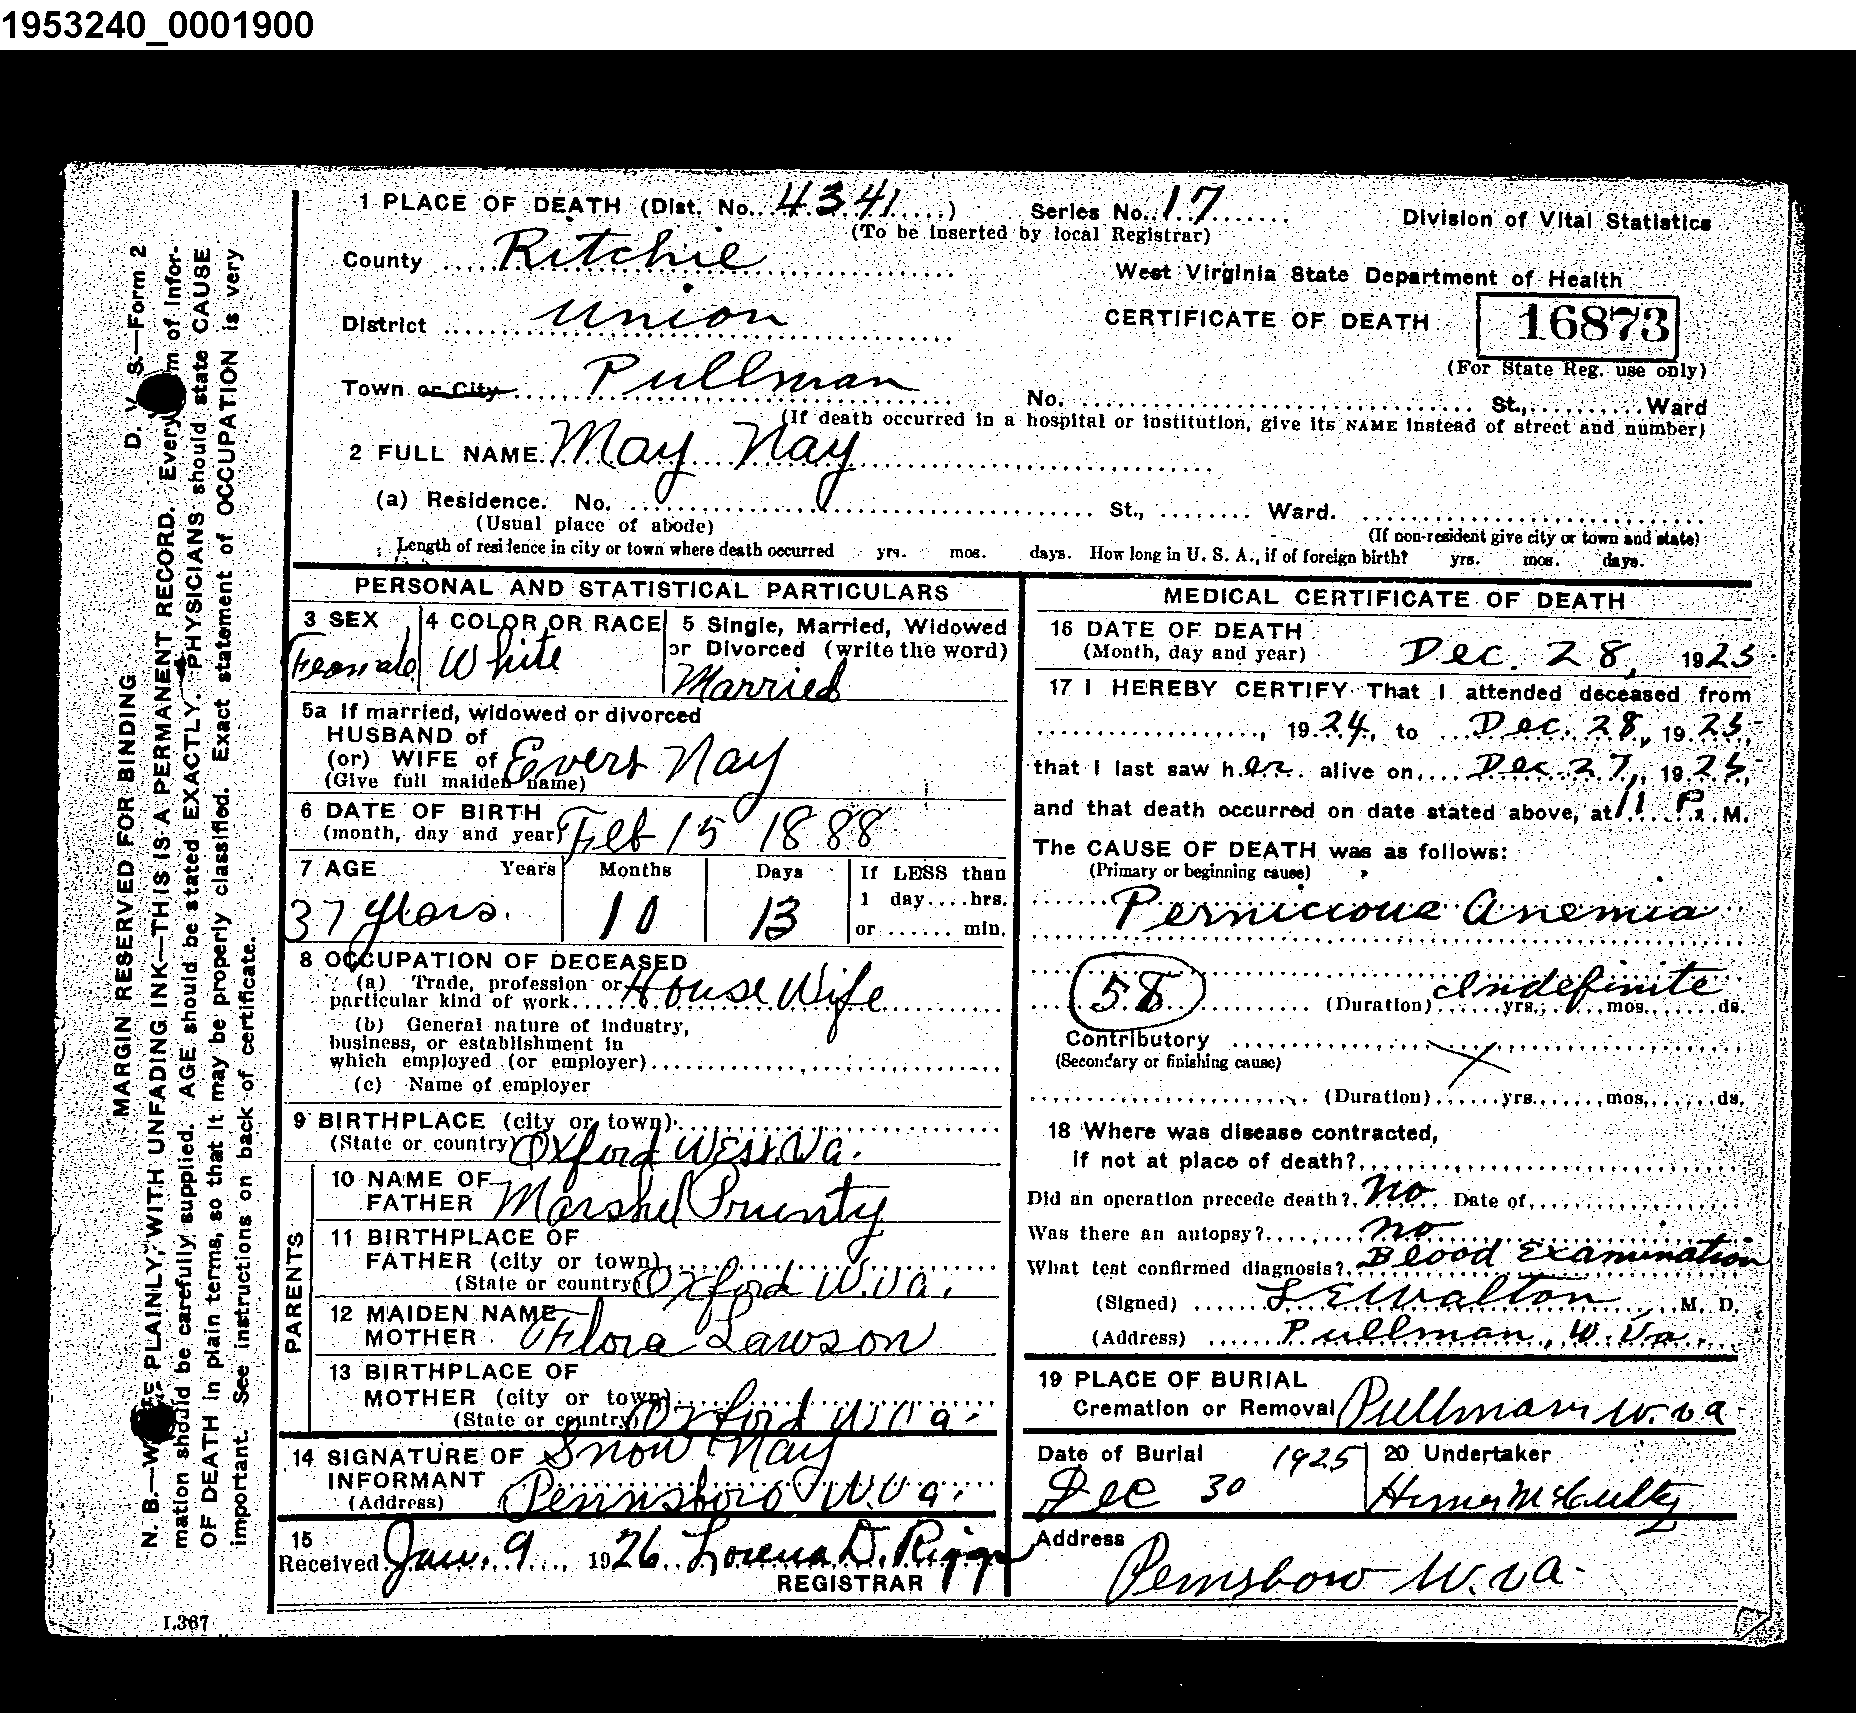 1953240_0001900
1 PLACE OF DEATH (Dist. No. 4341 ) Series No. 17 Division of Vital Statistics
(To be inserted by local Registrar)
County Ritchie
West Virginia State Department of Health
District Union
CERTIFICATE OF DEATH 16873
(For State Reg. use only)
Town or City Pullman
No. St., Ward
(If death occurred in a hospital or institution, give its NAME instead of street and number)
2 FULL NAME May Nay
(a) Residence. No. St., Ward.
(Usual place of abode) (If non-resident give city or town and state)
Length of residence in city or town where death occurred yrs. mos. days. How long in U. S. A., if of foreign birth? yrs. mos. days.
PERSONAL AND STATISTICAL PARTICULARS
3 SEX 4 COLOR OR RACE 5 Single, Married, Widowed
or Divorced (write the word)
Female White Married
5a If married, widowed or divorced
HUSBAND of
(or) WIFE of Evert Nay
(Give full maiden name)
6 DATE OF BIRTH
(month, day and year) Feb 15 1888
7 AGE Years Months Days If LESS than
1 day....hrs.
37 years. 10 13 or ...... min.
8 OCCUPATION OF DECEASED
(a) Trade, profession or
particular kind of work House Wife
(b) General nature of industry,
business, or establishment in
which employed (or employer)
(c) Name of employer
9 BIRTHPLACE (city or town)
(State or country) Oxford West. Va.
PARENTS
10 NAME OF
FATHER Marshel Prunty
11 BIRTHPLACE OF
FATHER (city or town)
(State or country) Oxford W.Va.
12 MAIDEN NAME
MOTHER Flora Lawson
13 BIRTHPLACE OF
MOTHER (city or town)
(State or country) Oxford W.Va.
14 SIGNATURE OF Snow Nay
INFORMANT
(Address) Pennsboro W.Va.
15
Received Jan. 9, 1926 Lorena D. Riggs
REGISTRAR
MEDICAL CERTIFICATE OF DEATH
16 DATE OF DEATH
(Month, day and year) Dec. 28, 1925
17 I HEREBY CERTIFY That I attended deceased from
, 1924, to Dec. 28, 1925,
that I last saw her alive on Dec 27, 1925,
and that death occurred on date stated above, at 11 P. M.
The CAUSE OF DEATH was as follows:
(Primary or beginning cause)
Pernicious Anemia
58 (Duration) Indefinite yrs. mos. ds.
Contributory
(Secondary or finishing cause)
(Duration) yrs. mos. ds.
18 Where was disease contracted,
if not at place of death?
Did an operation precede death? No Date of
Was there an autopsy? no
What test confirmed diagnosis? Blood Examination
(Signed) L E Walton M. D.
(Address) Pullman, W. Va.
19 PLACE OF BURIAL
Cremation or Removal Pullman W.Va.
Date of Burial 1925 20 Undertaker
Dec 30
Address
Pennsboro W.Va.
D. V. S.—Form 2
MARGIN RESERVED FOR BINDING
N. B.—WRITE PLAINLY, WITH UNFADING INK—THIS IS A PERMANENT RECORD. Every item of infor-
mation should be carefully supplied. AGE should be stated EXACTLY. PHYSICIANS should state CAUSE
OF DEATH in plain terms, so that it may be properly classified. Exact statement of OCCUPATION is very
important. See instructions on back of certificate.
L367